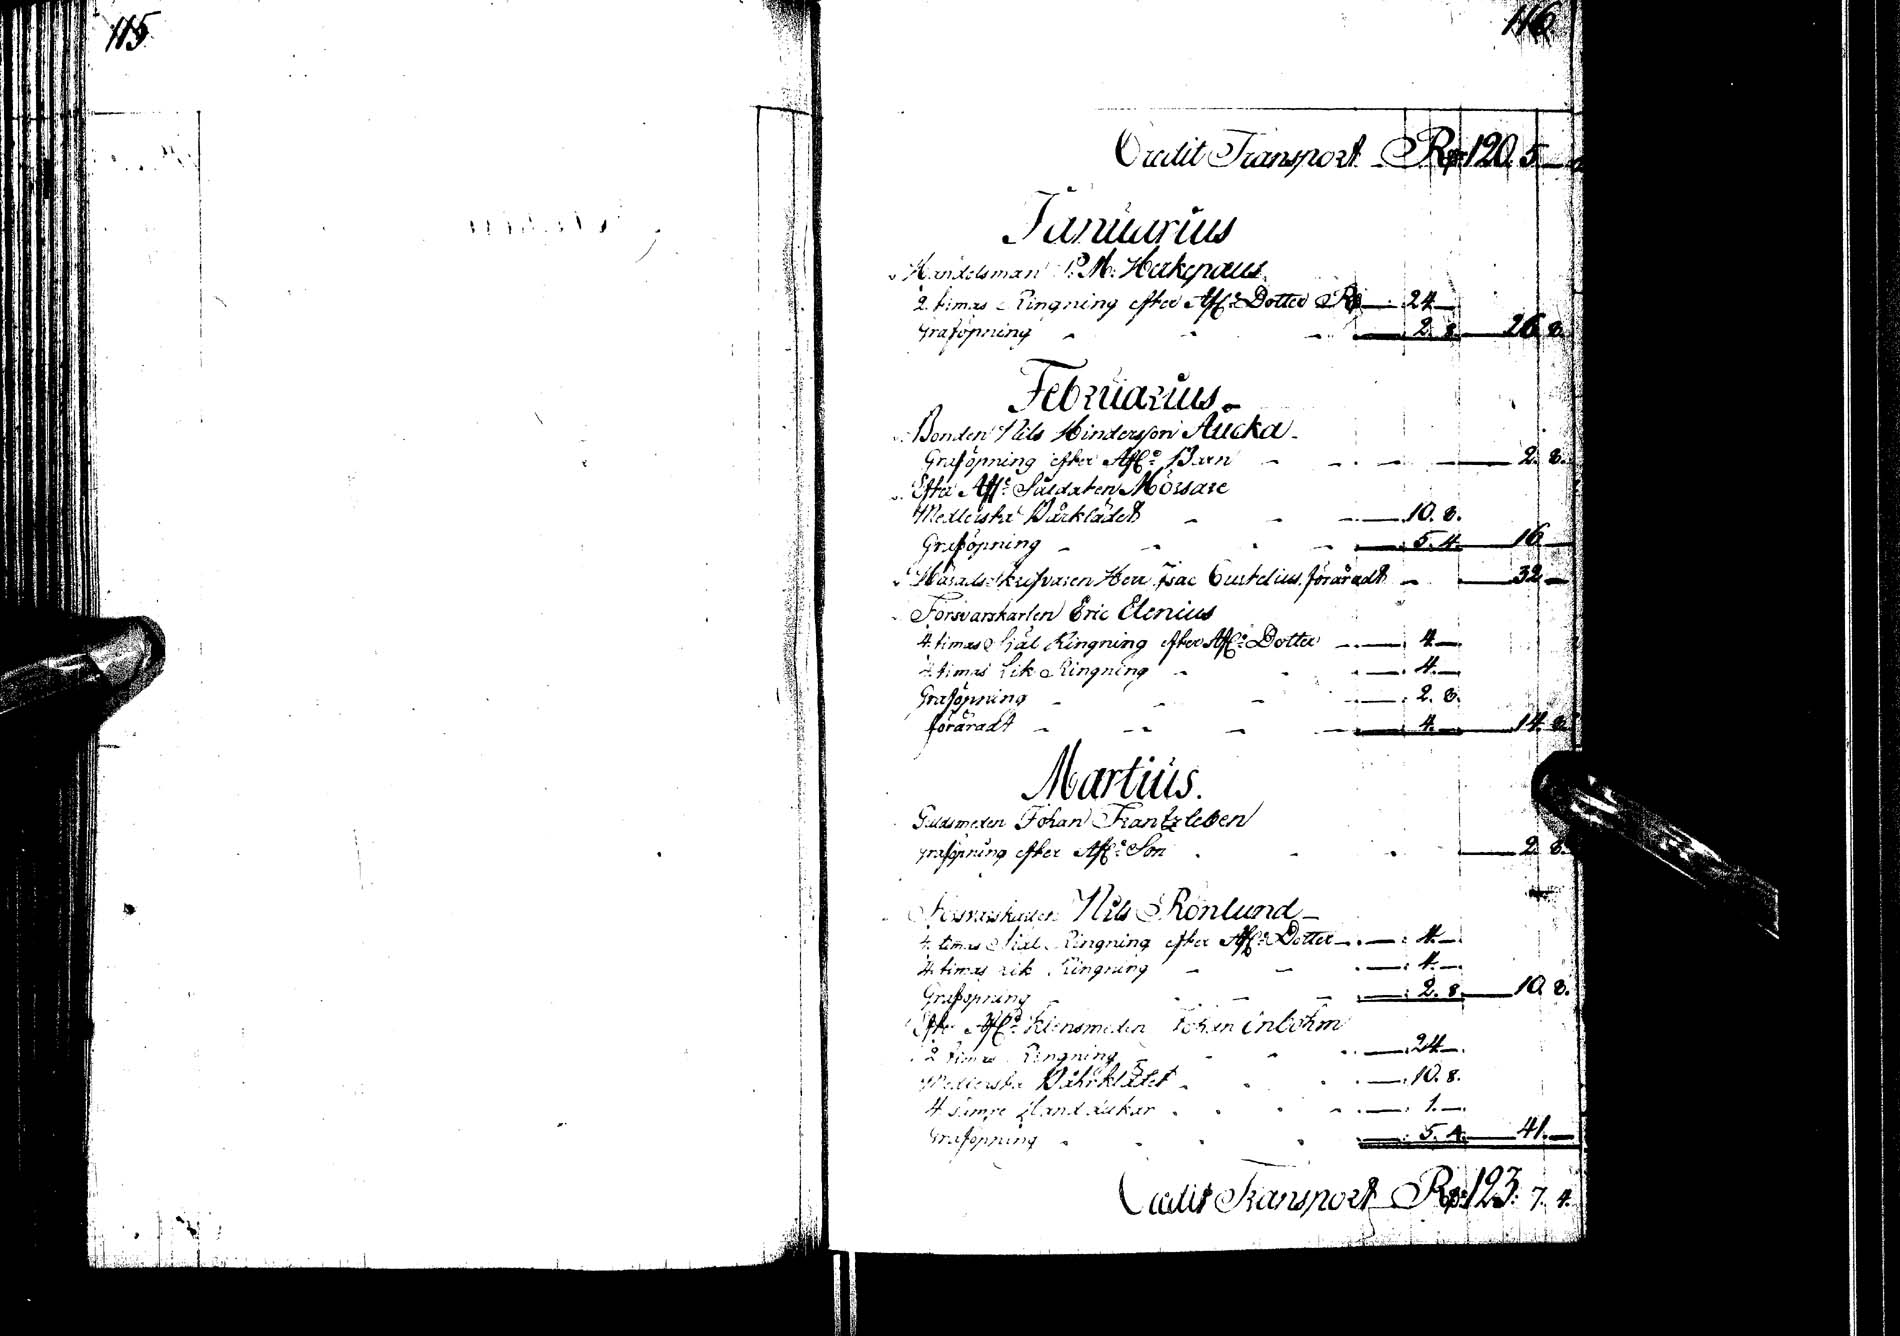 115
116
Credit Transport Rp: 120. 5
Januarius
Handelsman P. M. Heckepaeus
2. timas Ringning efter Afl:e Dotter Rp 24
Graföpning 2. 8. 26. 8.
Februarius
Bonden Nils Hindersson Aucka
Graföpning efter Afl:e Barn 2. 8.
Efter Afl:e Saldaten Mörsare
Medlersta Bårklädet 10. 8.
Graföpning 5. 4. 16
Häradsskrifvaren Herr Isac Curtelius föräradt 32
Försvarskarlen Eric Elenius
4. timas Siäl Ringning efter Afl:e Dotter 4
4. timas Lik Ringning 4
Graföpning 2. 8.
föräradt 4. 14. 8
Martius.
Guldsmeden Johan Frantzleben
graföpning efter Afl:e Son 2. 8.
Försvarskarlen Nils Rönlund
4. timas Siäl Ringning efter Afl:e Dotter 4
4. timas Lik Ringning 4
Graföpning 2. 8. 10. 8.
Efter Afl:e Klensmeden Johan Enbohm
2 timas Ringning 24
Medlersta Båhrklädet 10. 8.
4 sämre Handdukar 1.
Graföpning 5. 4. 41.
Credit Transport Rp: 123: 7. 4.